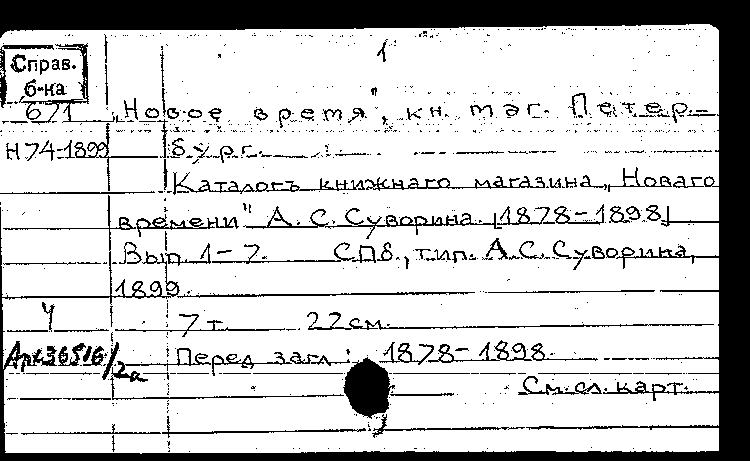 1
Справ.
б-ка
671 „Новое время", кн. маг. Петер-
Н74-1899 бург.
Каталогъ книжнаго магазина „Новаго
времени" А. С. Суворина. [1878-1898]
Вып. 1-7. СПб., тип. А.С. Суворина,
1899.
Ч 7 т. 22 см.
Арх36516/2а Перед загл: 1878-1898.
См. сл. карт.